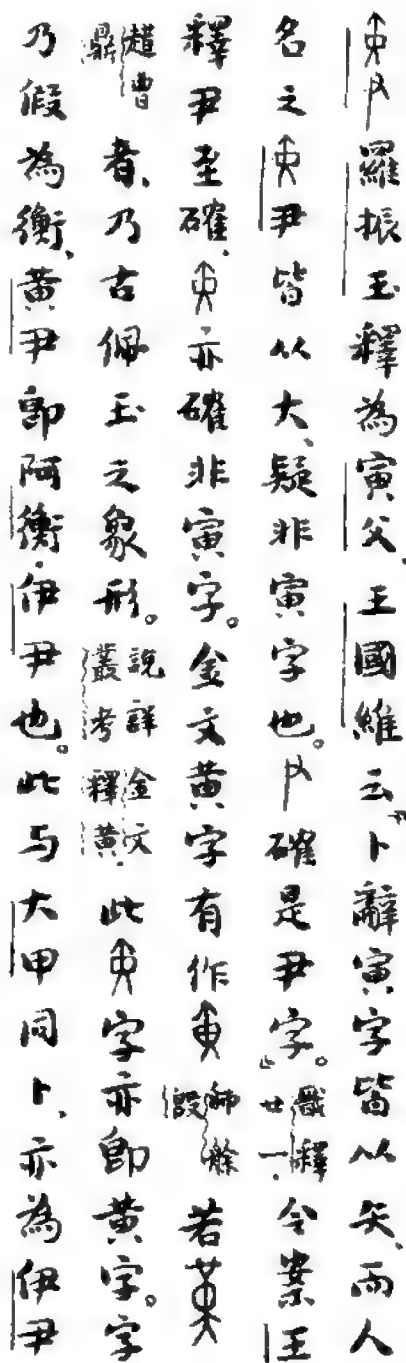 羅振玉釋為寅父,王國維云「卜辭寅字皆从矢,而人
名之尹皆从大,疑非寅字也。確是尹字」。戩釋廿一.今案王
釋尹至確,亦確非寅字。金文黄字有作師艅𣪘若
趙曹鼎者,乃古佩玉之象形。說詳金文叢考釋黄此字亦即黄字。字
乃假為衡,黄尹即阿衡·伊尹也。此与大甲同卜,亦為伊尹